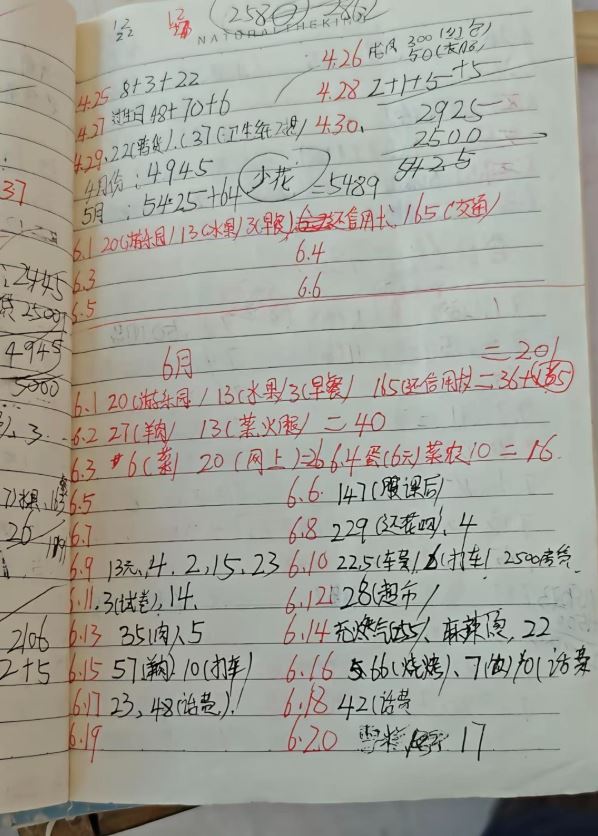 12
22
12
(2580) 286
NATURAL THEKI
4.25 8+3+22
4.26 300(红包)
50
4.27 过生日48+70+6
4.28 2+1+5+5
4.29、22(营货)、(37(卫生纸2提)
4.30、
2925
2500
5425
4月份:4945
5月:5425+64 少花=5489
6.1 20(游乐园)/13(水果)3(早餐)还信用卡 165(交通)
6.3
6.4
6.5
6.6
37
2445
2500
4945
5000
6月
=201
6.1 20(游乐园)/13(水果)3(早餐) 165(还信用卡=36+165
6.2 27(羊肉) 13(菜,火腿) =40
6.3 6(菜) 20(网上)=26 6.4 餐(6元)菜农10=16
6.5
6.6 147(暖课后)
6.7
6.8 229(还花呗)、4
6.9 13元、4、2、15、23
6.10 22.5(车费)、6(打车) 2500房贷
6.11、3(试卷)、14、
6.12 28(超市)
6.13 35(肉)、5
6.14 充燃气、麻辣烫、22
6.15 57(羊肉) 10(打车)
6.16 566(烧烤)、7(油)
6.17 23、48(话费)
6.18 42(话费
6.19
6.20 雪糕 17
20
2106
2+5